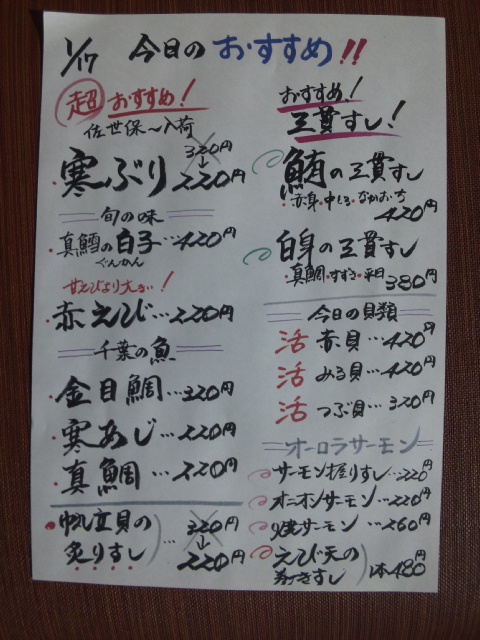 1/17 今日のおすすめ!!
超おすすめ!
佐世保〜入荷
寒ぶり 320円→220円
旬の味
真鱈の白子…420円
ぐんかん
甘えびより大きい!
赤えび…220円
千葉の魚
金目鯛…320円
寒あじ…220円
真鯛…220円
帆立貝の
炙りすし … 320円→220円
おすすめ!
三貫すし!
鮪の三貫すし
赤身・中とろ・なかおち
420円
白身の三貫すし
真鯛・すずき・平目 380円
今日の貝類
活 赤貝…420円
活 みる貝…420円
活 つぶ貝…320円
オーロラサーモン
サーモン握りすし…220円
オニオンサーモン…220円
焼サーモン…260円
えび天の
巻きすし 1本480円